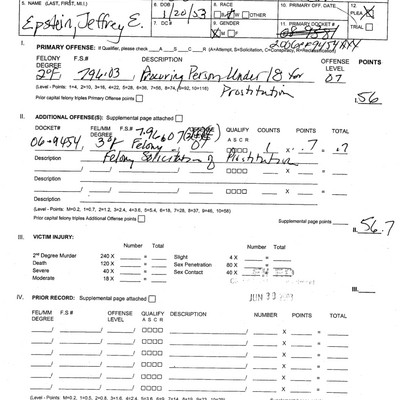 5. NAME (LAST, FIRST, M.I.)
Epstein, Jeffrey E.
6. DOB
1/20/53
7. DC#
8. RACE
B W OTHER
9. GENDER
M F
10. PRIMARY OFF. DATE
11. PRIMARY DOCKET #
12.
PLEA
TRIAL
I. PRIMARY OFFENSE: If Qualifier, please check A S C R (A=Attempt, S=Solicitation, C=Conspiracy, R=Reclassification)
FELONY DEGREE F.S.# DESCRIPTION OFFENSE LEVEL POINTS
2°F 796.03 Procuring Person Under 18 for Prostitution 07
(Level - Points: 1=4, 2=10, 3=16, 4=22, 5=28, 6=36, 7=56, 8=74, 9=92, 10=116)
Prior capital felony triples Primary Offense points
I. 56
II. ADDITIONAL OFFENSE(S): Supplemental page attached
DOCKET# FEL/MM DEGREE F.S.# OFFENSE LEVEL QUALIFY A S C R COUNTS POINTS TOTAL
06-9454 3°F 796.07 Felony 01 1 X .7 = .7
Description Felony Solicitation of Prostitution
/ / / X =
Description
(Level - Points: M=0.2, 1=0.7, 2=1.2, 3=2.4, 4=3.6, 5=5.4, 6=18, 7=28, 8=37, 9=46, 10=58)
Prior capital felony triples Additional Offense points
Supplemental page points
II. 56.7
III. VICTIM INJURY:
Number Total Number Total
2nd Degree Murder 240 X = Slight 4 X =
Death 120 X = Sex Penetration 80 X =
Severe 40 X = Sex Contact 40 X =
Moderate 18 X =
III.
JUN 30
IV. PRIOR RECORD: Supplemental page attached
FEL/MM DEGREE F.S.# OFFENSE LEVEL QUALIFY A S C R DESCRIPTION NUMBER POINTS TOTAL
/ / X =
/ / X =
/ / X =
/ / X =
/ / X =
/ / X =